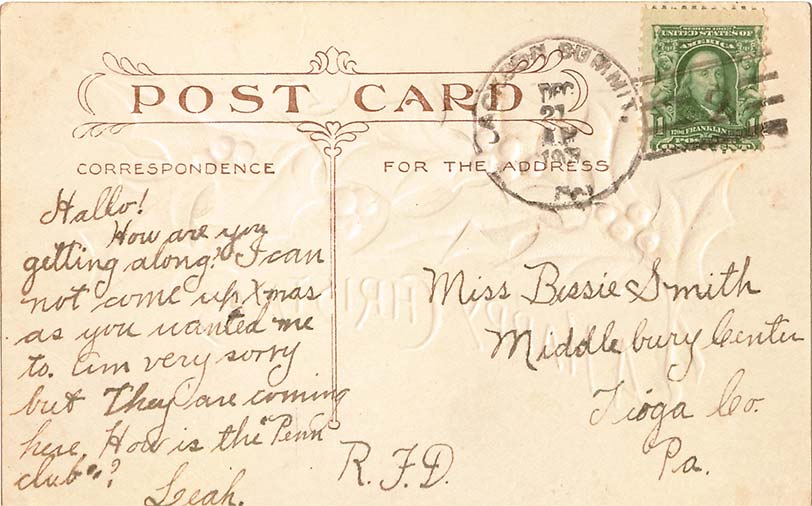 POST CARD
CORRESPONDENCE
FOR THE ADDRESS
JACKSON SUMMIT.
DEC
21
PA.
SERIES 1902
UNITED STATES OF
AMERICA
1 FRANKLIN 1
Hallo!
How are you
getting along? I can
not come up Xmas
as you wanted me
to. am very sorry
but They are coming
here. How is the "Penn
club"?
Leah.
Miss Bessie Smith
Middlebury Center
Tioga Co.
Pa.
R.F.D.